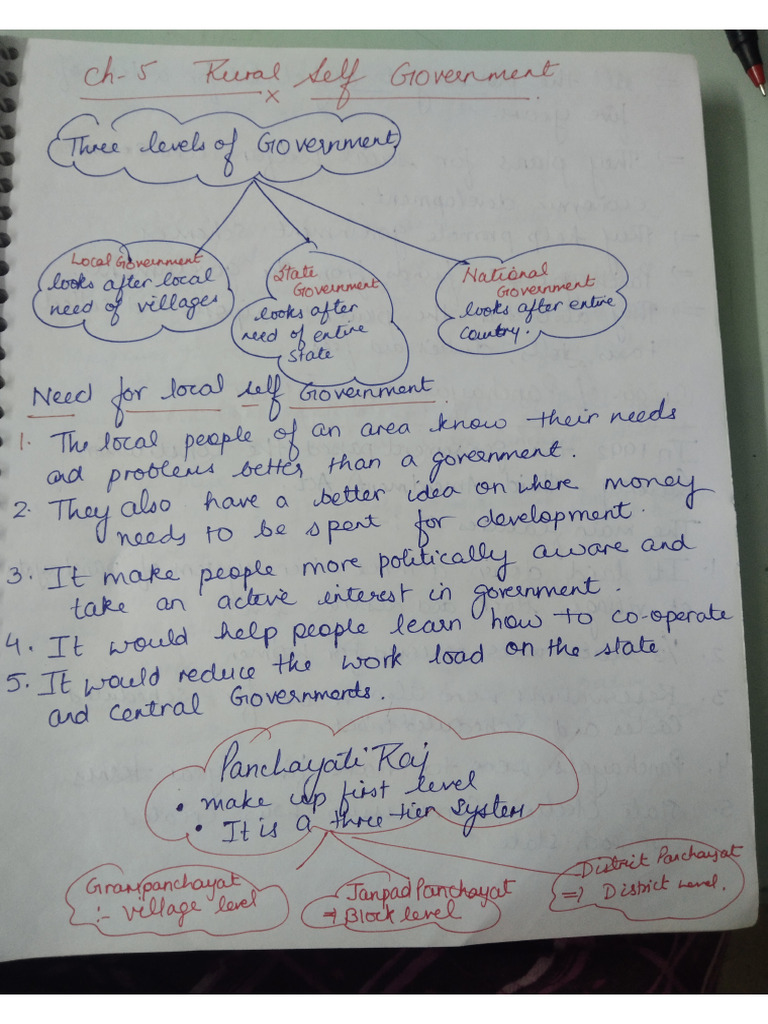 Ch-5 Rural Self Government
x
Three levels of Government
Local Government
looks after local
need of villages
State
Government
looks after
need of entire
State
National
Government
looks after entire
Country.
Need for local self Government
1. The local people of an area know their needs
and problems better than a government.
2. They also have a better idea on where money
needs to be spent for development.
3. It make people more politically aware and
take an active interest in government.
4. It would help people learn how to co-operate
5. It would reduce the work load on the state
and central Governments.
Panchayati Raj
• make up first level
• It is a three tier system
Grampanchayat
:- village level
Janpad Panchayat
⇒ Block level
District Panchayat
⇒ District level.